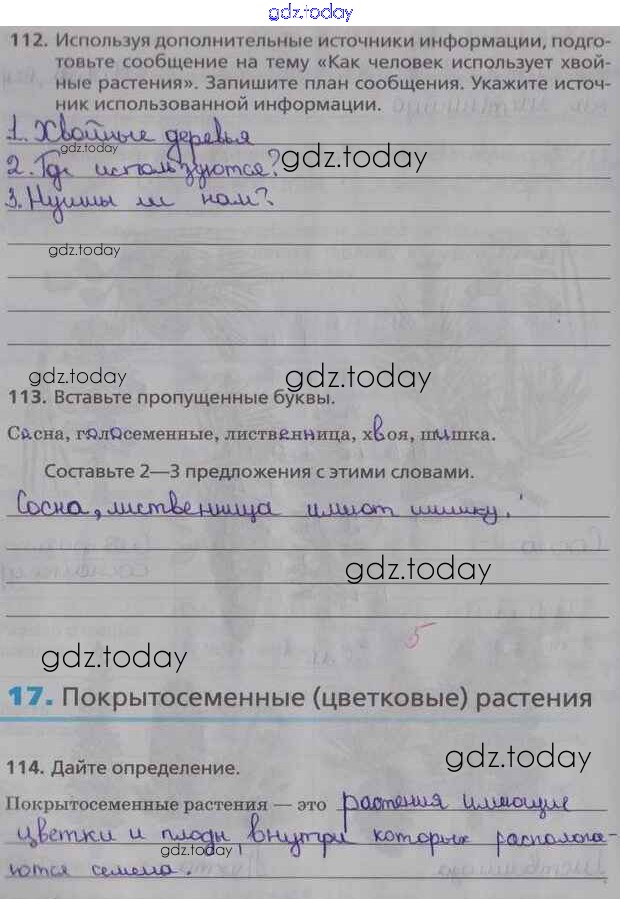 gdz.today
112. Используя дополнительные источники информации, подго-
товьте сообщение на тему «Как человек использует хвой-
ные растения». Запишите план сообщения. Укажите источ-
ник использованной информации.
1. Хвойные деревья
gdz.today
2. Где используются?
gdz.today
3. Нужны ли нам?
gdz.today
gdz.today
gdz.today
113. Вставьте пропущенные буквы.
Сосна, голосеменные, лиственница, хвоя, шишка.
Составьте 2—3 предложения с этими словами.
Сосна, лиственница имеют шишку.
gdz.today
5
gdz.today
17. Покрытосеменные (цветковые) растения
gdz.today
114. Дайте определение.
Покрытосеменные растения — это растения имеющие
цветки и плоды внутри которых распологa-
gdz.today
ются семена.